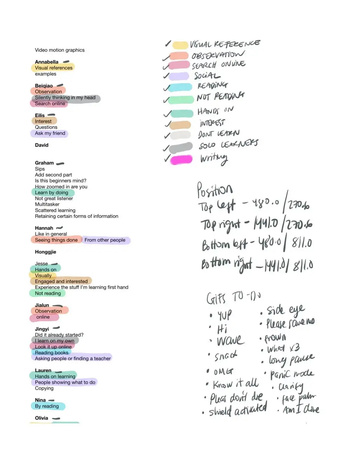 Video motion graphics
Annabella
Visual references
examples
Beiqiao
Observation
Silently thinking in my head
Search online
Eilis
Interest
Questions
Ask my friend
David
Graham
Sips
Add second part
Is this beginners mind?
How zoomed in are you
Learn by doing
Not great listener
Multitasker
Scattered learning
Retaining certain forms of information
Hannah
Like in general
Seeing things done From other people
Honggjie
Jesse
Hands on
Visually
Engaged and interested
Experience the stuff I'm learning first hand
Not reading
Jialun
Observation
online
Jingyi
Did it already started?
I learn on my own
Look it up online
Reading books
Asking people or finding a teacher
Lauren
Hands on learning
People showing what to do
Copying
Nina
By reading
Olivia
VISUAL REFERENCE
OBSERVATION
SEARCH ONLINE
SOCIAL
READING
NOT READING
HANDS ON
INTEREST
DONT LEARN
SOLO LEARNERS
Writing
Position
Top left - 480.0/270.0
Top right - 1441.0/270.0
Bottom left - 480.0/811.0
Bottom right - 1441.0/811.0
GIFS TO-DO
• YUP
• Hi
• Wave
• snack
• OMG
• Know it all
• Please don't die
• shield activated
• side eye
• Please save me
• drown
• what x3
• long pause
• panic mode
• clarify
• face palm
• Am I clone